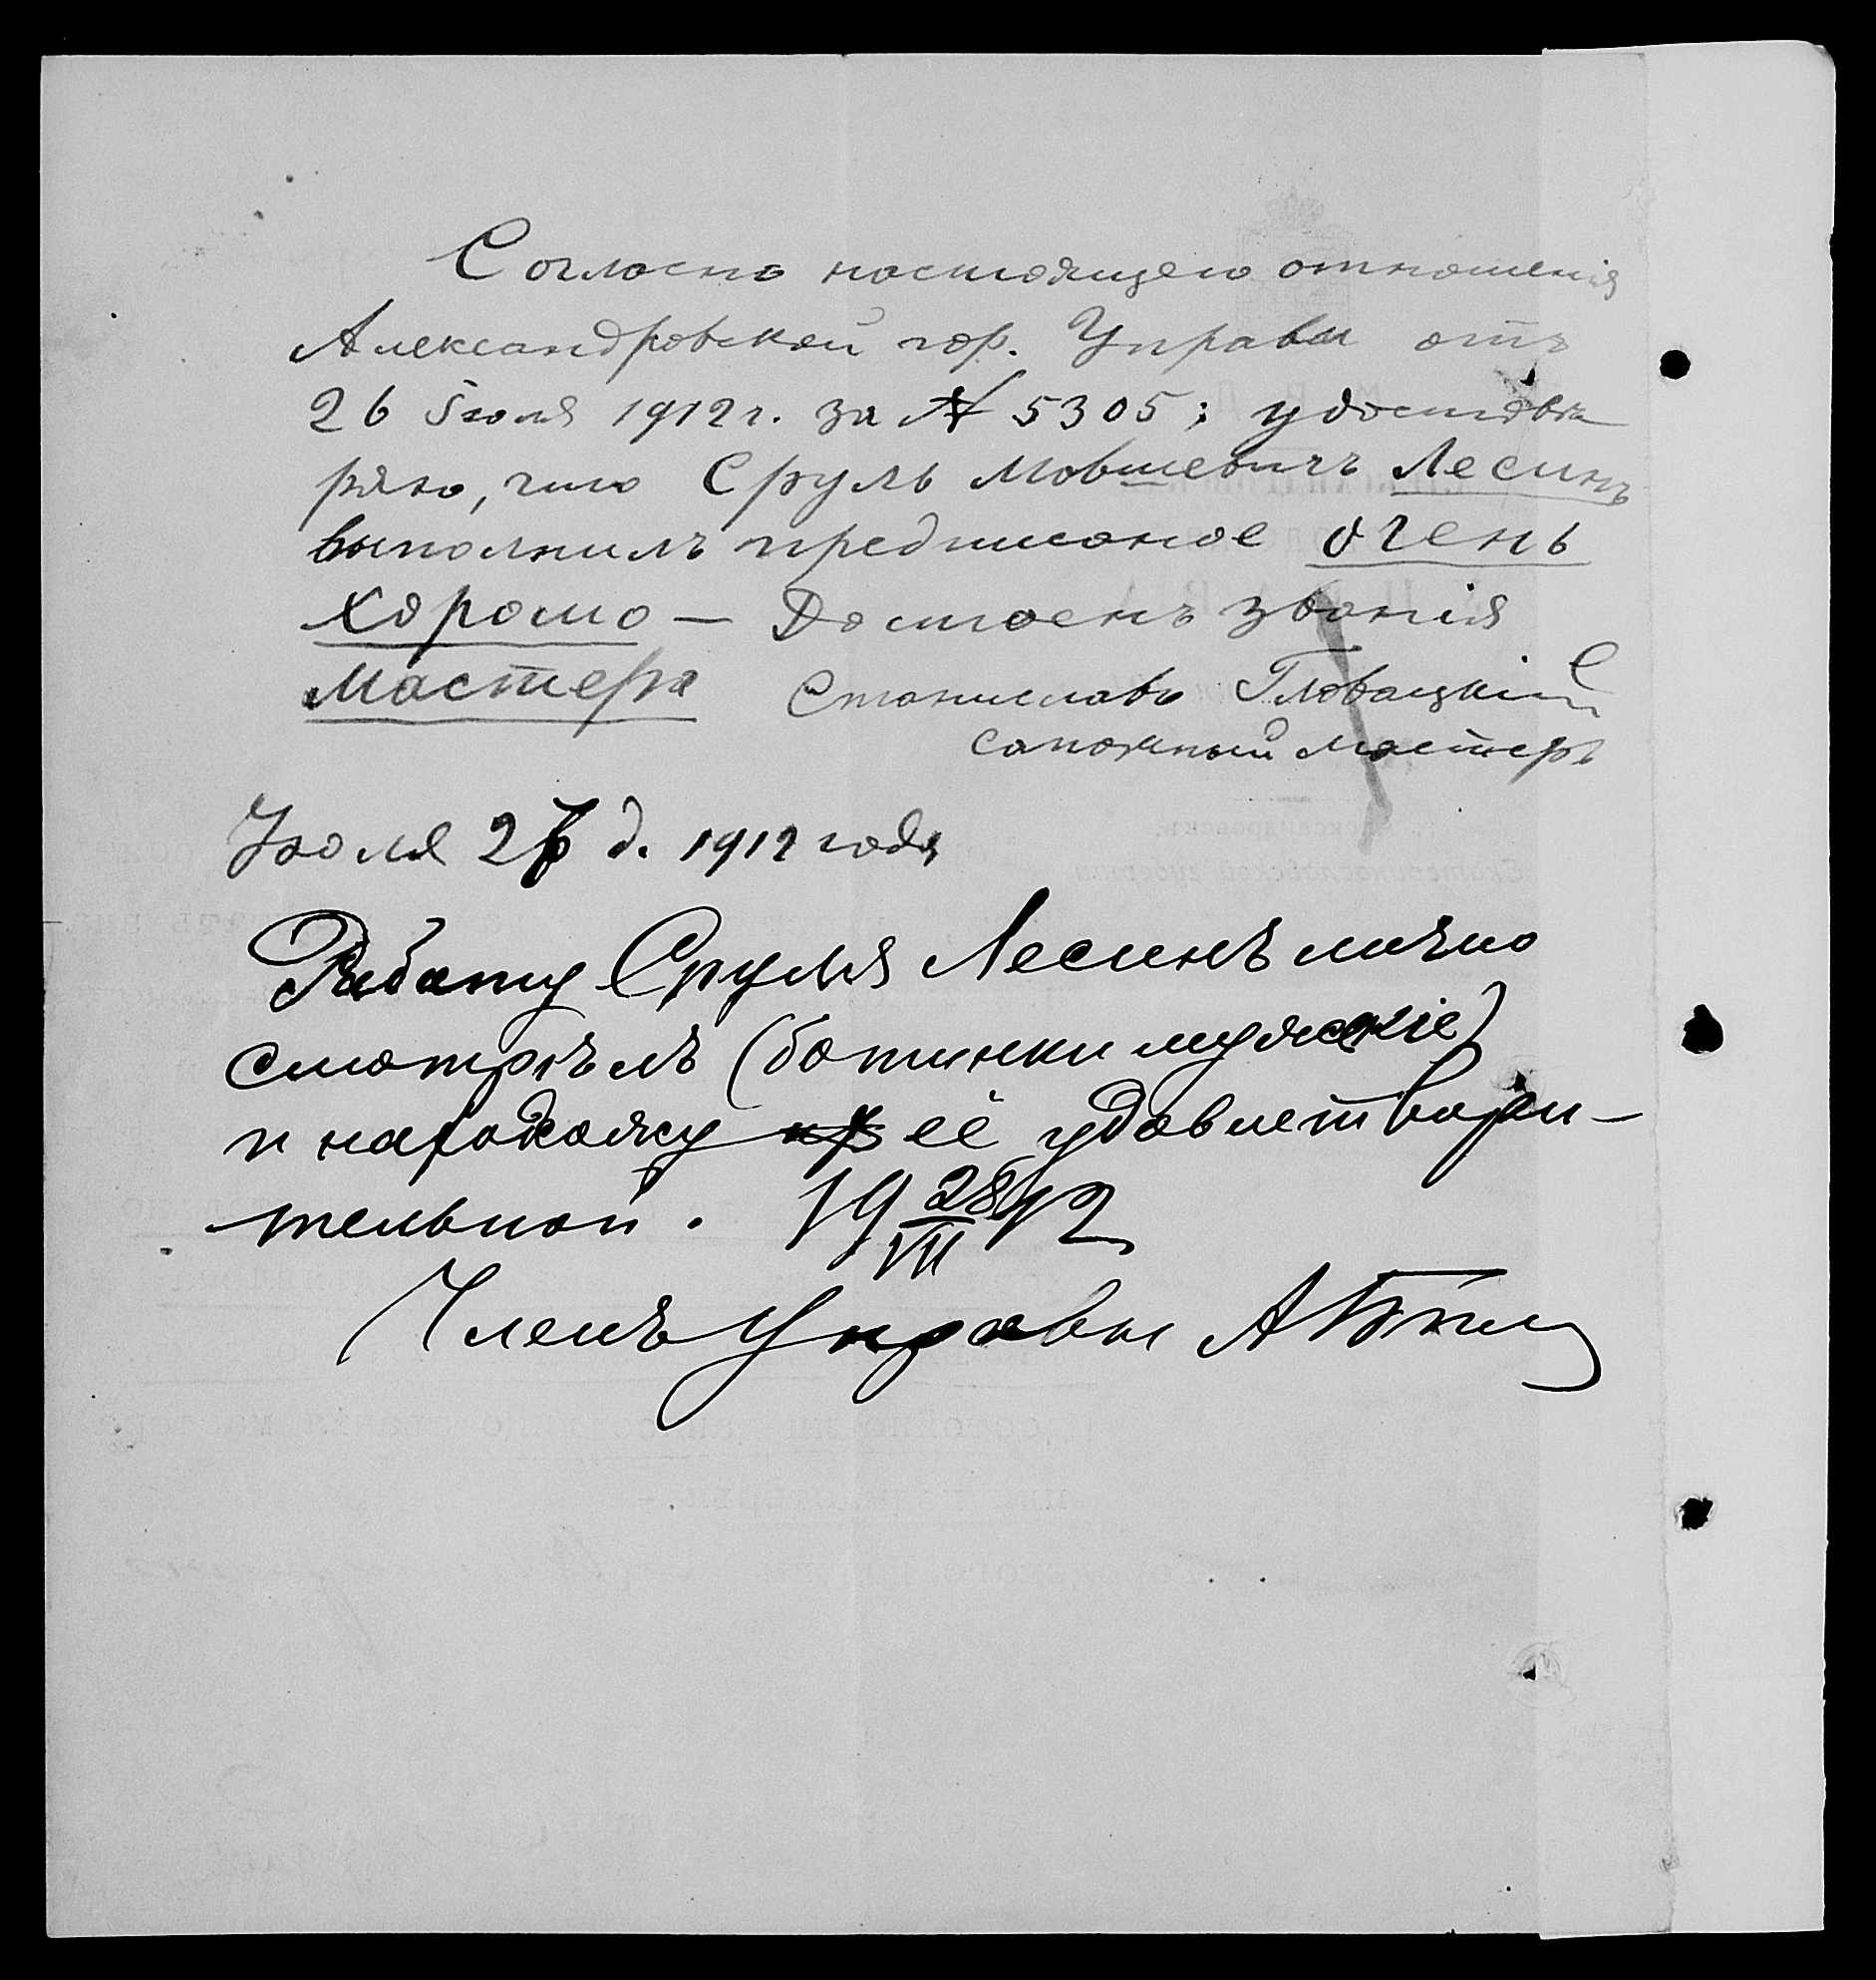 Согласно настоящего отношенія
Александровской гор. Управы отъ
26 Іюля 1912 г. за № 5305; удостовѣ
ряю, что Сруль Мовшевичъ Лесинъ
выполнилъ предписаное очень
хорошо — Достоенъ званія
мастера Станиславъ Гловацкій
сапожный мастеръ
Іюля 26 д. 1912 года
Работу Сруля Лесинъ лично
смотрѣлъ (ботинки мужскіе)
и нахожу её удовлетвори-
тельной. 19 28/VII 12
Членъ Управы